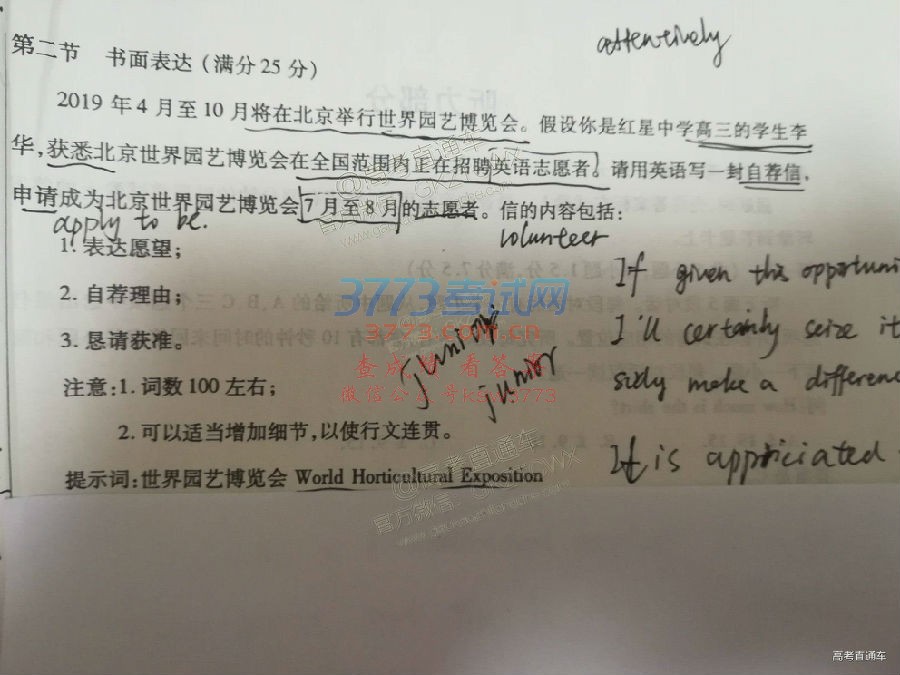 attentively
第二节 书面表达(满分25分)
2019年4月至10月将在北京举行世界园艺博览会。假设你是红星中学高三的学生李
华,获悉北京世界园艺博览会在全国范围内正在招聘英语志愿者。请用英语写一封自荐信,
申请成为北京世界园艺博览会7月至8月的志愿者。信的内容包括:
apply to be.
volunteer
1. 表达愿望;
2. 自荐理由;
3. 恳请获准。
注意:1. 词数100左右;
2. 可以适当增加细节,以使行文连贯。
提示词:世界园艺博览会 World Horticultural Exposition
junior
If given this opportuni
I'll certainly seize it
make a differen
It is appriciated
3773考试网
3773.com.cn
查成绩 看答案
微信公众号ksw3773
@高考直通车
官方微信:GKZTCWX
高考直通车